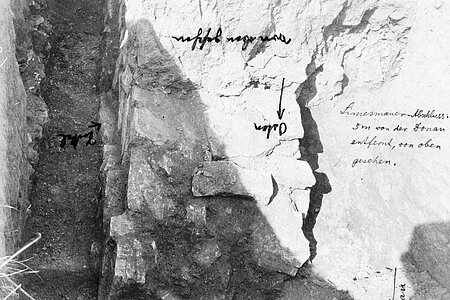 von oben gesehen
Osten
Limesmauer-Abschluss:
5m von der Donau
entfernt, von oben
gesehen.